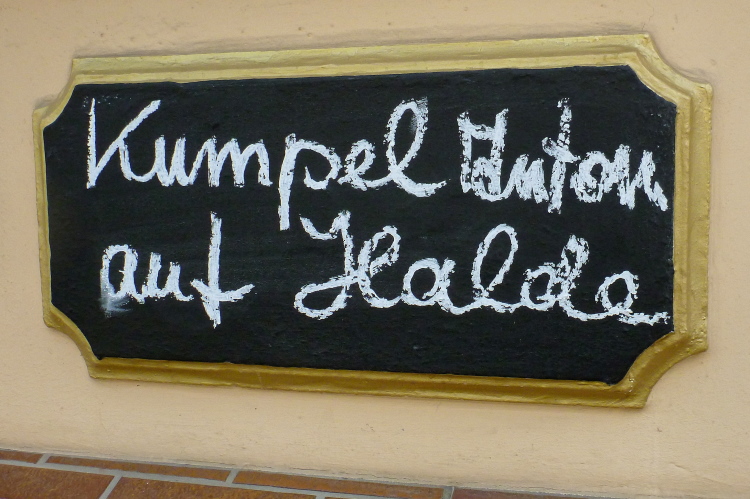 Kumpel Anton
auf Halde